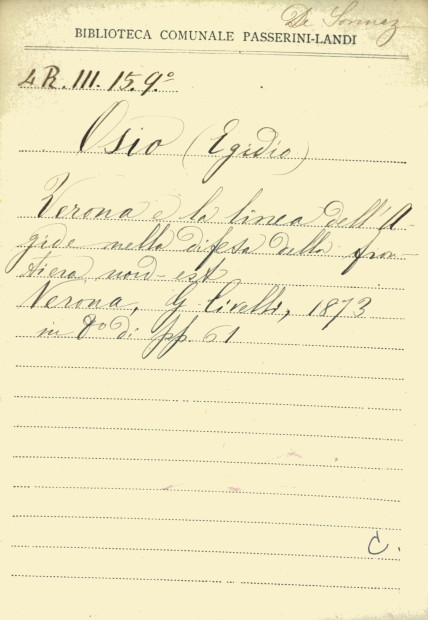 De Sonnaz
BIBLIOTECA COMUNALE PASSERINI-LANDI
4 R. III. 15. 9.°
Osio (Egidio)
Verona e la linea dell'A-
gide nella difesa della fron-
tiera nord-est
Verona, G. Civelli, 1873
in 8° di pp. 61
C.